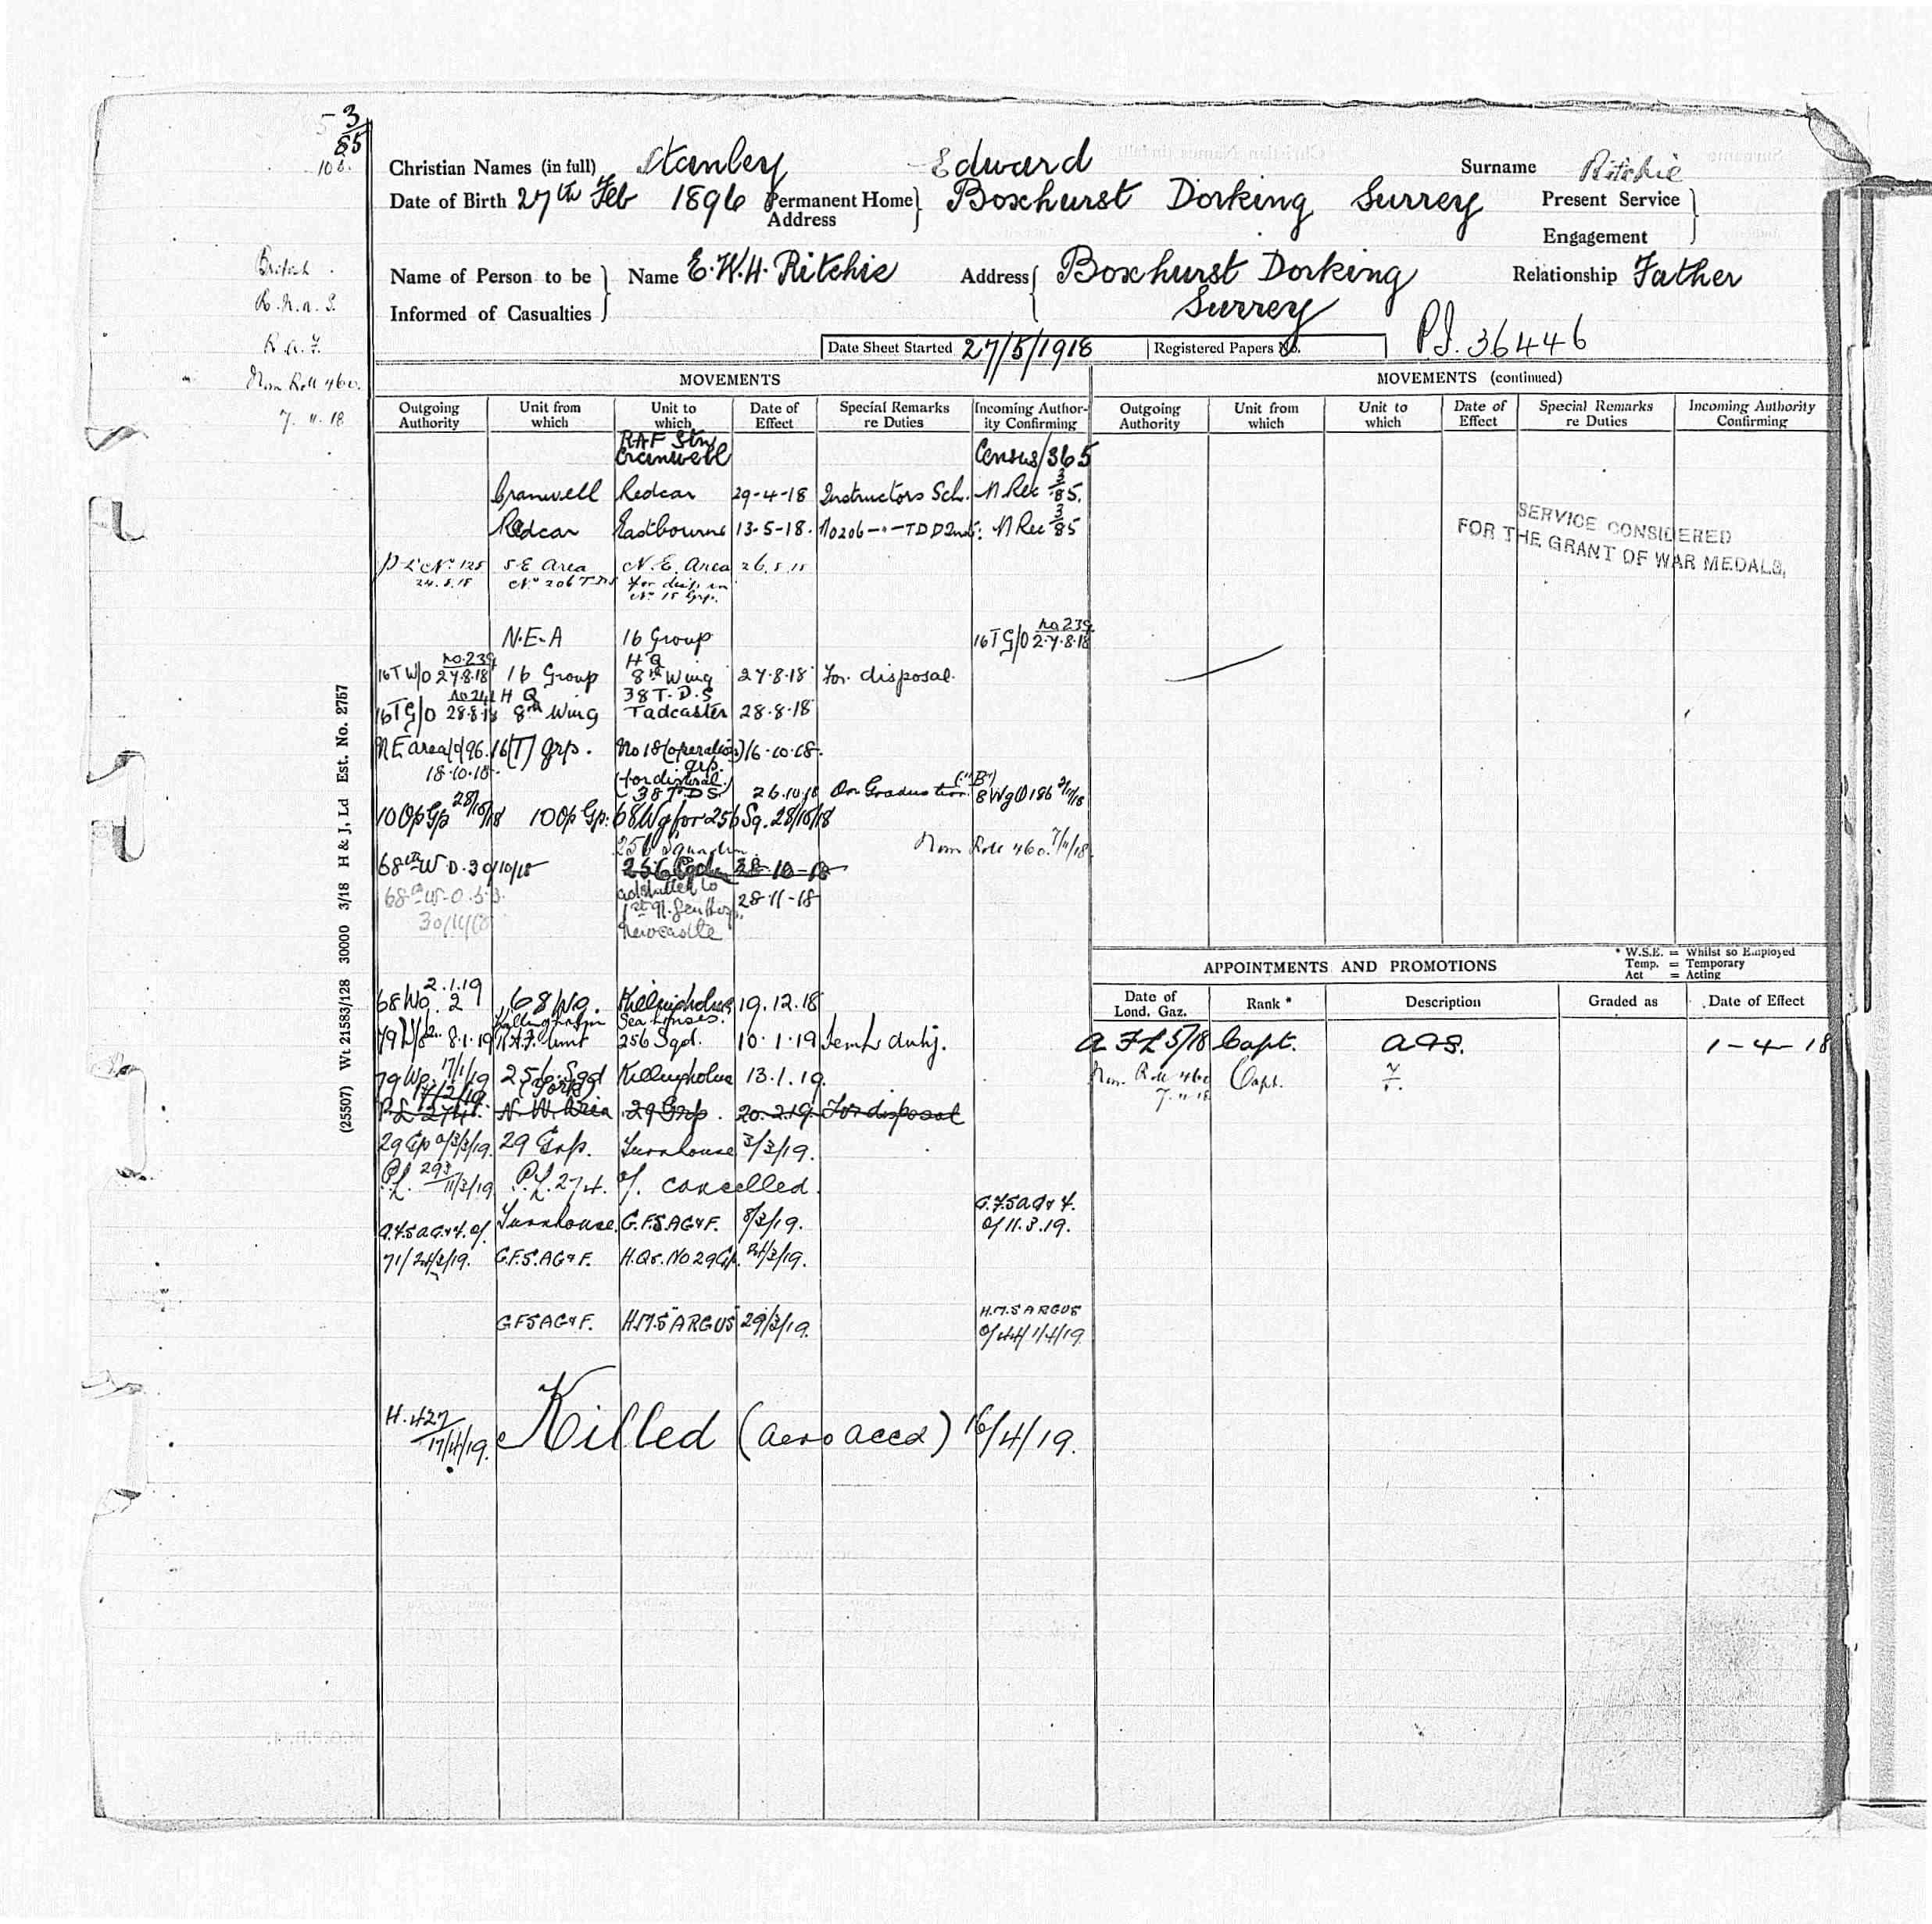 3
85
108.
Christian Names (in full) Stanley Edward Surname Ritchie
Date of Birth 27th Feb 1896 Permanent Home Address Boxhurst Dorking Surrey Present Service Engagement
British.
R.N.A.S.
R.A.F.
Nom Roll 460.
7.11.18
Name of Person to be Informed of Casualties Name E.W.H. Ritchie Address Boxhurst Dorking Relationship Father
Surrey
Date Sheet Started 27/5/1918 Registered Papers No. P/. 36446
MOVEMENTS MOVEMENTS (continued)
Outgoing Authority Unit from which Unit to which Date of Effect Special Remarks re Duties Incoming Authority Confirming Outgoing Authority Unit from which Unit to which Date of Effect Special Remarks re Duties Incoming Authority Confirming
RAF Stn Cranwell Census/365
Cranwell Redcar 29-4-18 Instructors Sch. N Rec 3/85.
Redcar Eastbourne 13-5-18. No 206 -"- TDD N Rec 3/85
SERVICE CONSIDERED
FOR THE GRANT OF WAR MEDALS,
P L No 125 S E Area N.E. Area 26.5.18
24.5.18 No 206 TDS for disp. in
No 18 Grp.
N.E.A 16 Group 16TG/O No 239 27.8.18
16TW/O No. 239 27.8.18 16 Group HQ 8th Wing 27.8.18 For disposal.
16TG/O 28.8.18 HQ 8th Wing 38 T.D.S Tadcaster 28.8.18
NE area/d/96. 18.10.18. 16(T) grp. No 18 (operations) grp. 16.10.18.
(for disposal) 38 TDS 26.10.18 On Graduation ("B") 8 Wg O 186 2/11/18
10 Op Gp 28/10/18 10 Op Gp: 68 Wg for 256 Sq. 28/10/18
256 Squadron Nom Roll 460. 7/11/18.
68th W O. 30/10/18 256 Sqdn 28-10-18
68th W.O. 53. 30/11/18 admitted to 1st N. Gen Hosp. Newcastle 28-11-18
68 Wg. 2 2.1.19 68 Wg. Killingholme 19.12.18
79 W/2 8.1.19 Killingholme R.A.F. Unit Sea houses. 256 Sqd. 10.1.19 Temp duty.
79 Wg. 17/1/19 256 Sqd Killingholme 13.1.19.
P.L. 274. 17/2/19 (York) N.W. Area 29 Grp. 20.2.19. For disposal
29 Gp o/3/3/19. 29 Grp. Turnhouse 3/3/19.
P.L. 293 11/3/19. P.L. 274. of. cancelled.
G.F.S.A.G & F. of. Turnhouse. G.F.S.A.G & F. 8/3/19. G.F.S.A.G & F. of 11.3.19.
71/24/3/19. G.F.S.A.G & F. H.Qs. No 29 Gp. 24/3/19.
G F S A G & F. H.M.S "ARGUS" 29/3/19. H.M.S ARGUS
O/44/1/4/19.
H.427 17/4/19. Killed (aero accd) 16/4/19.
* W.S.E. = Whilst so Employed
Temp. = Temporary
Act = Acting
APPOINTMENTS AND PROMOTIONS
Date of Lond. Gaz. Rank * Description Graded as Date of Effect
A F L 5/18 Capt. A & S. 1-4-18
Nom. Roll 460 7.11.18 Capt.
(25507) Wt 21583/128 30000 3/18 H & J, Ld Est. No. 2757